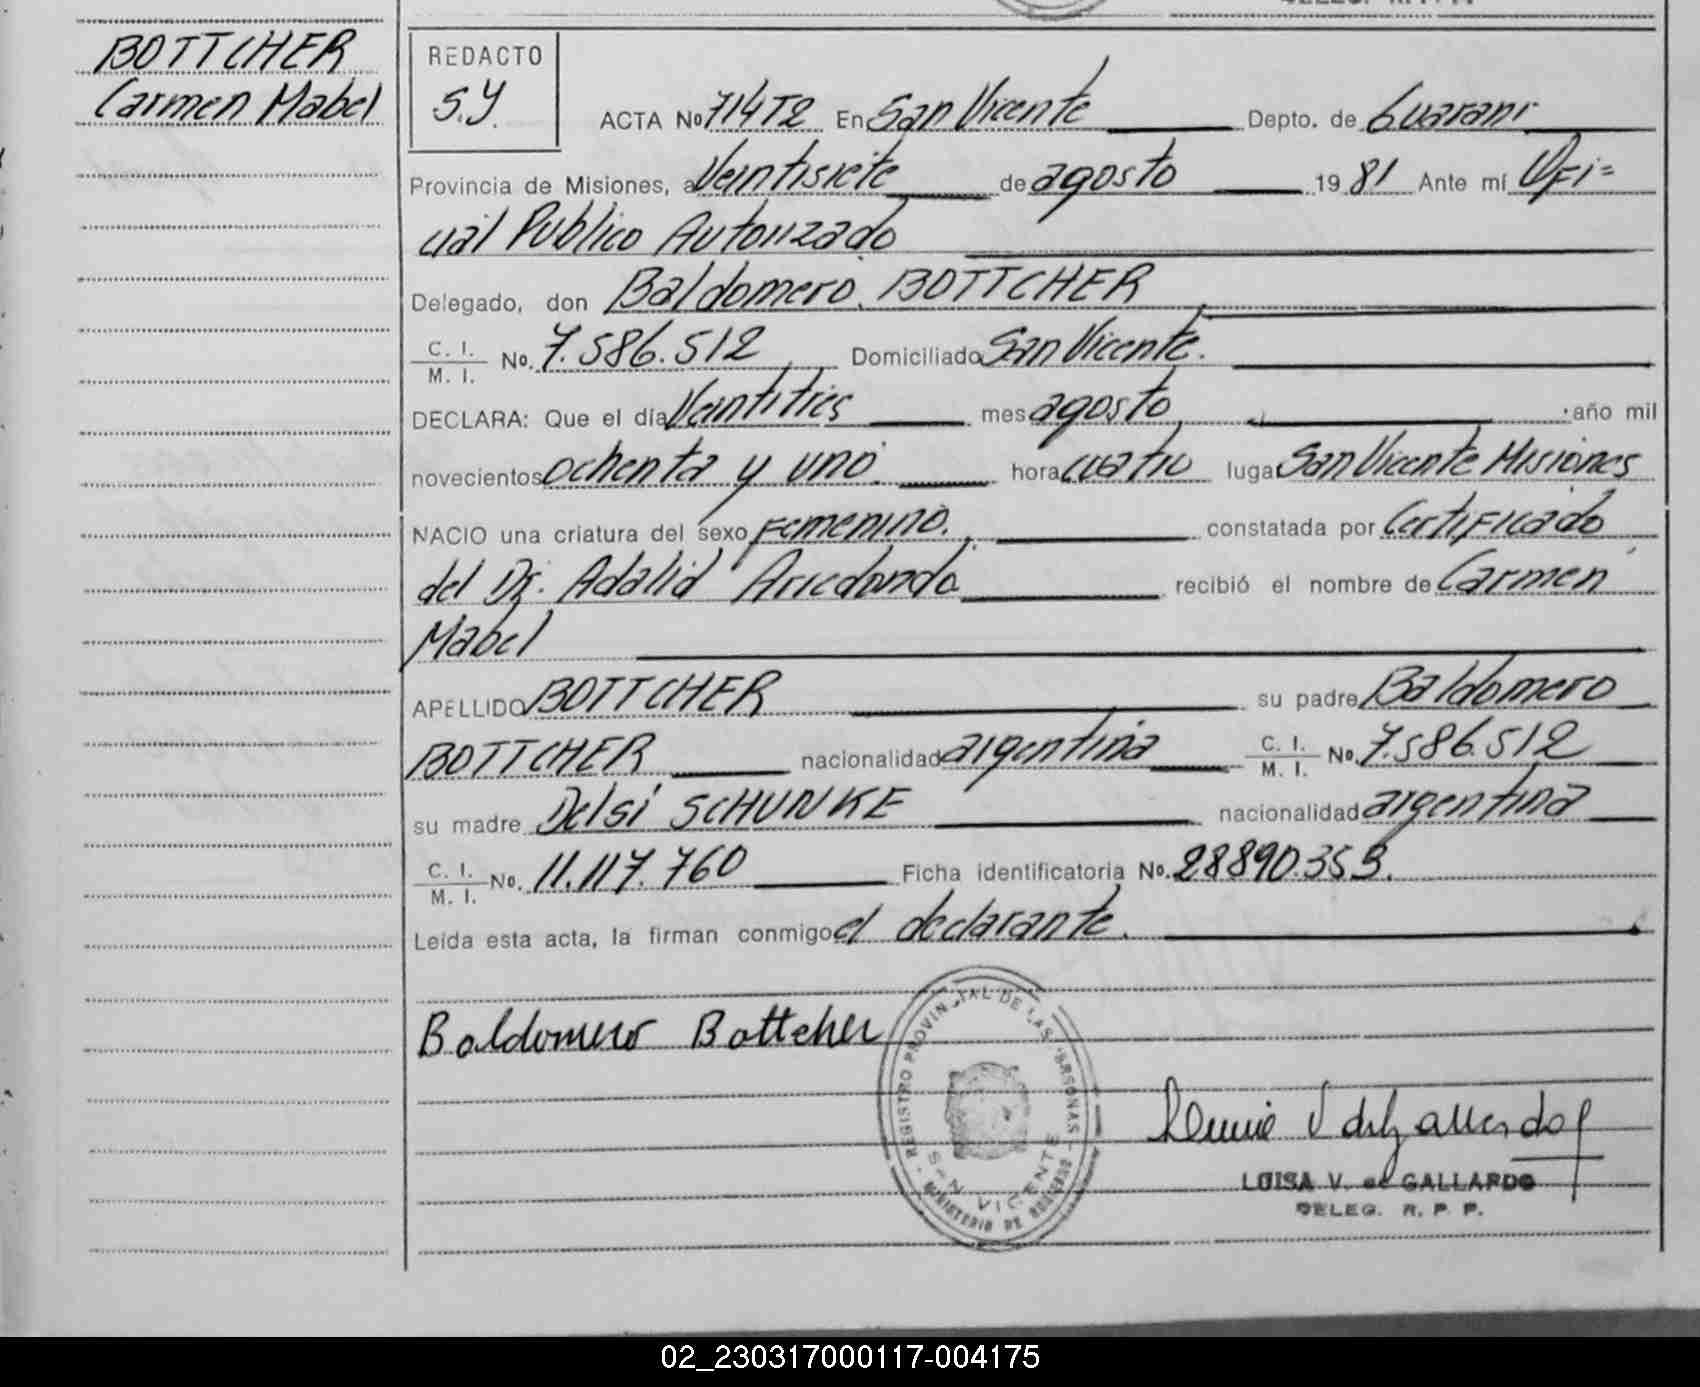 BOTTCHER
Carmen Mabel
REDACTO
S.Y.
ACTA No 714T2 En San Vicente Depto. de Guaraní
Provincia de Misiones, a Veintisiete de agosto 1981 Ante mí Ofi=
cial Publico Autorizado
Delegado, don Baldomero BOTTCHER
C. I.
M. I. No. 7.586.512 Domiciliado San Vicente.
DECLARA: Que el día Veintitres mes agosto año mil
novecientos ochenta y uno hora cuatro lugar San Vicente Misiones
NACIO una criatura del sexo femenino. constatada por Certificado
del Dr. Adalid Arredondo recibió el nombre de Carmen
Mabel
APELLIDO BOTTCHER su padre Baldomero
BOTTCHER nacionalidad argentina C. I.
M. I. No. 7.586.512
su madre Delsi SCHUNKE nacionalidad argentina
C. I.
M. I. No. 11.117.760 Ficha identificatoria No. 28890.353.
Leída esta acta, la firman conmigo el declarante.
Baldomero Bottcher
REGISTRO PROVINCIAL DE LAS PERSONAS
SAN VICENTE
MINISTERIO DE GOBIERNO
LUISA V. de GALLARDO
DELEG. R. P. P.
02_230317000117-004175